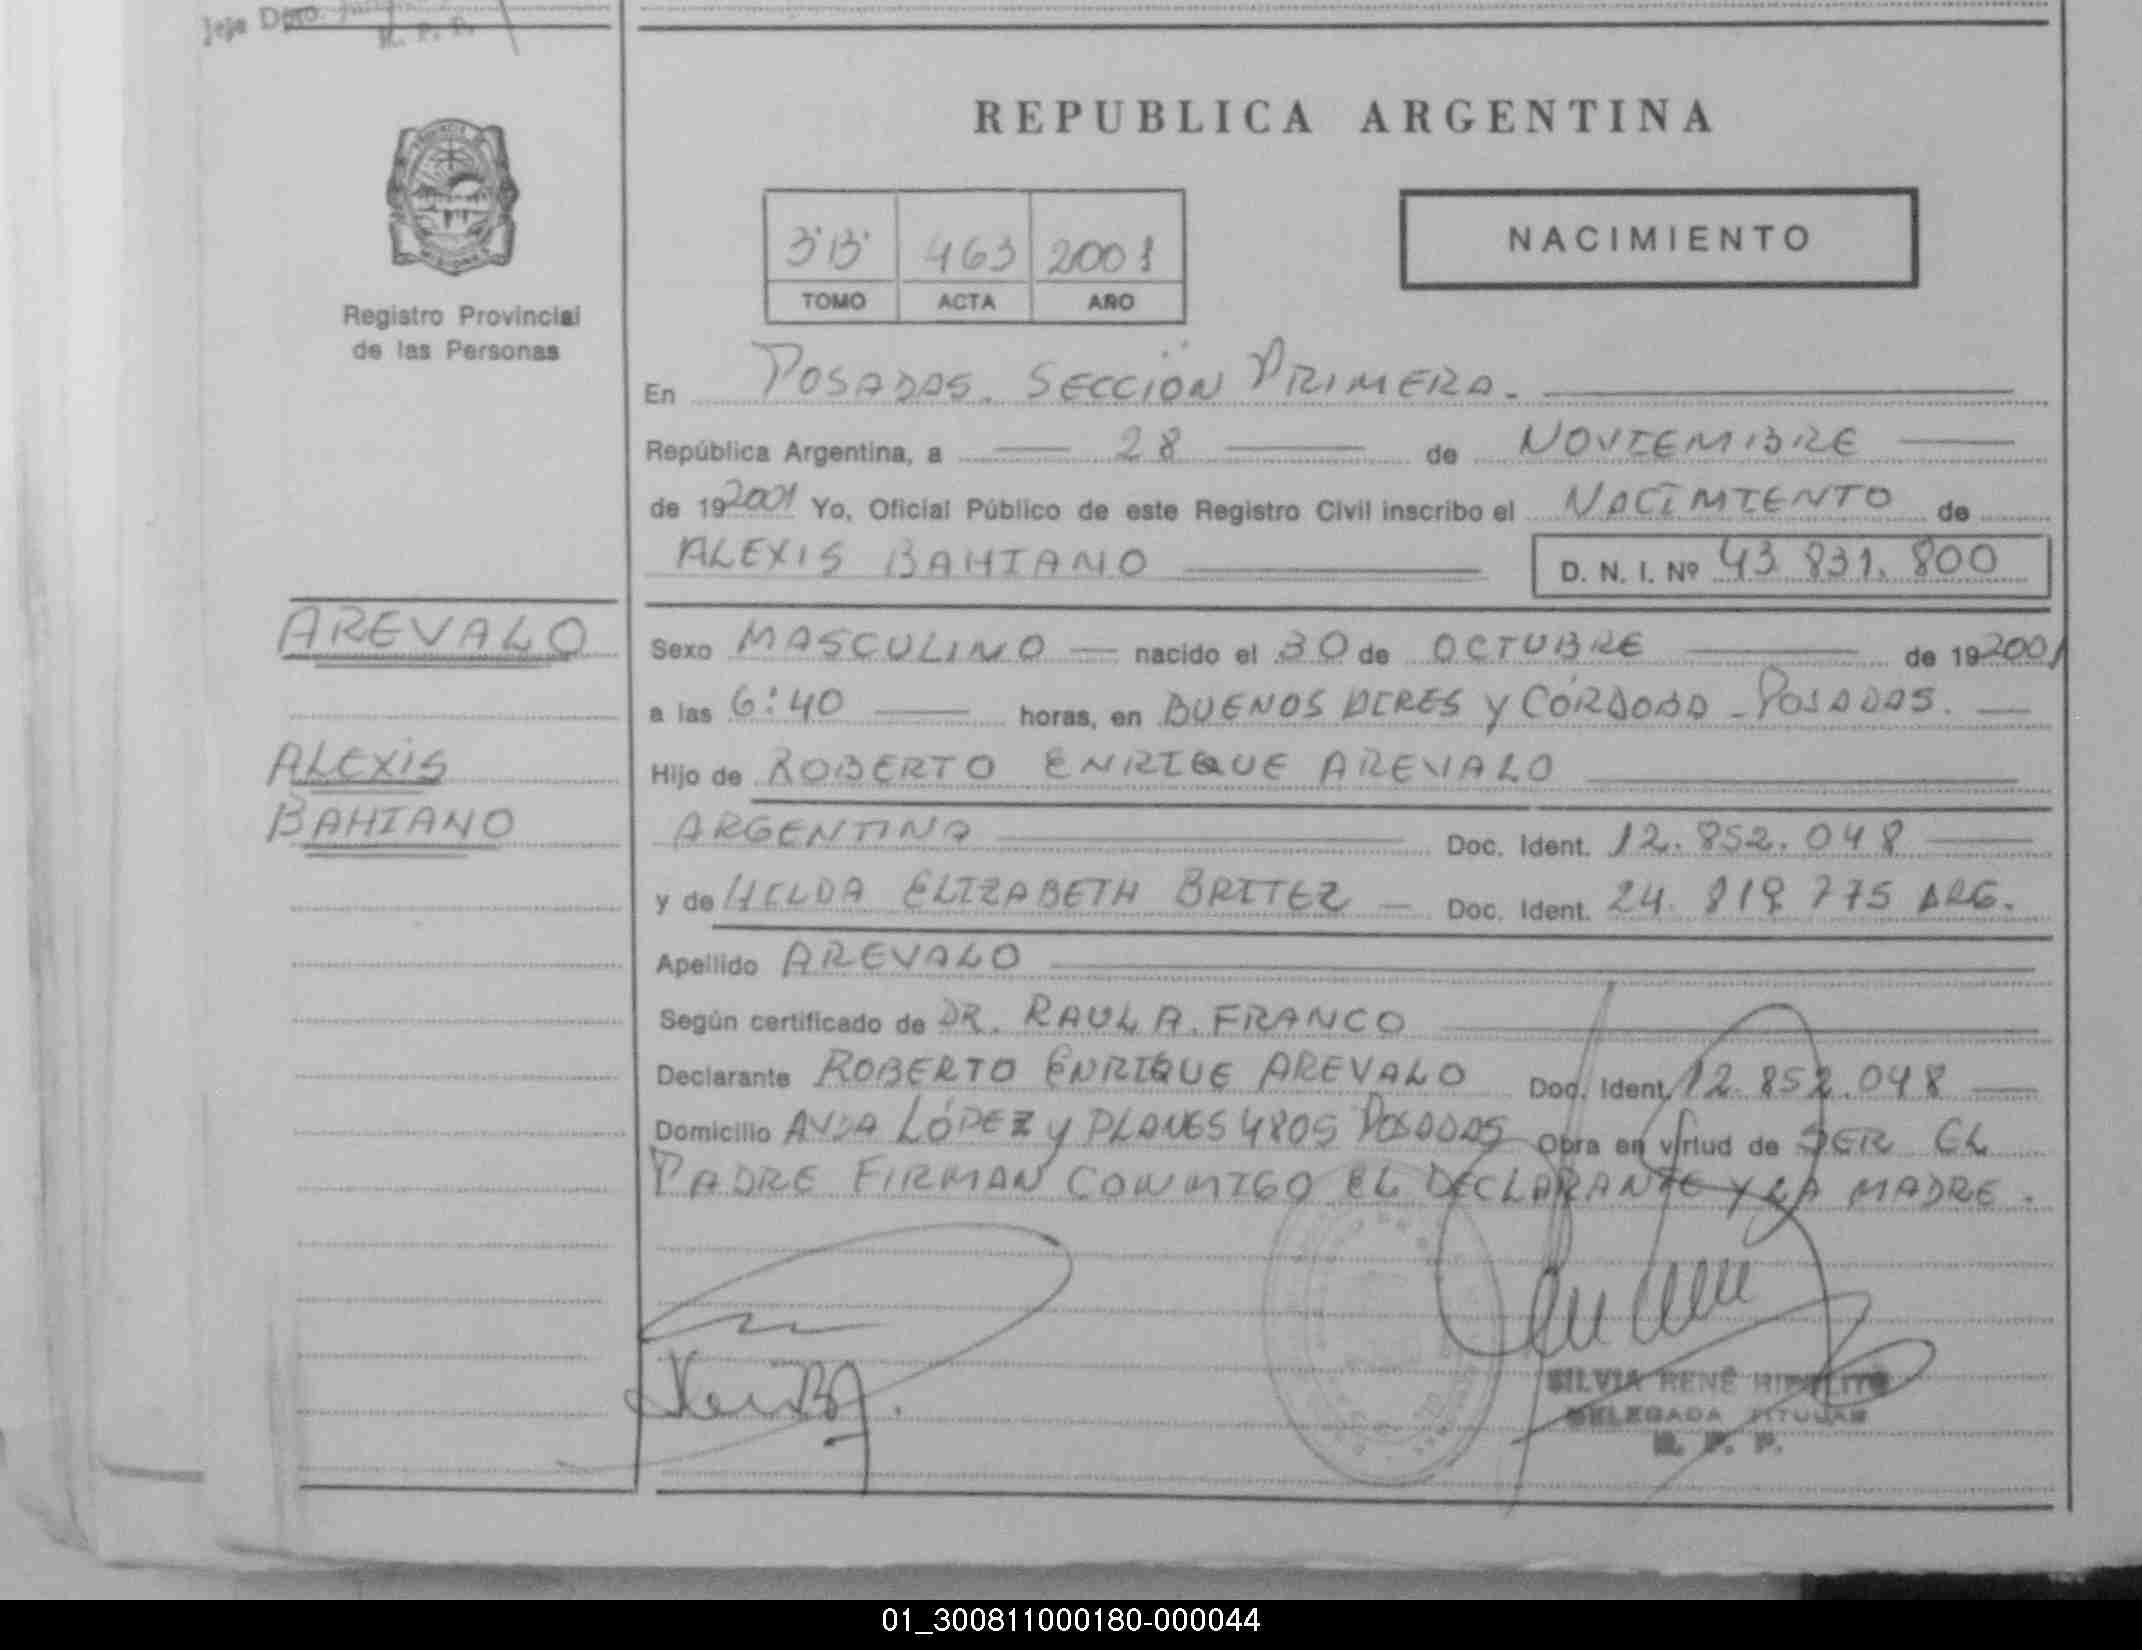 Jefe Dpto.
R. P. P.
REPUBLICA ARGENTINA
NACIMIENTO
3'B' 463 2001
TOMO ACTA AÑO
Registro Provincial
de las Personas
En POSADAS. SECCIÓN PRIMERA.
República Argentina, a 28 de NOVIEMBRE
de 192001 Yo, Oficial Público de este Registro Civil inscribo el NACIMIENTO de
ALEXIS BAHIANO D. N. I. Nº 43 831. 800
AREVALO
Sexo MASCULINO nacido el 30 de OCTUBRE de 192001
a las 6:40 horas, en BUENOS AIRES y CÓRDOBA - POSADAS.
ALEXIS
Hijo de ROBERTO ENRIQUE AREVALO
BAHIANO
ARGENTINA Doc. Ident. 12.852.048
y de HILDA ELIZABETH BRITEZ Doc. Ident. 24. 819 775 ARG.
Apellido AREVALO
Según certificado de DR. RAUL A. FRANCO
Declarante ROBERTO ENRIQUE AREVALO Doc. Ident. 12.852.048
Domicilio AVDA LÓPEZ y PLANES 4805 POSADAS Obra en virtud de SER EL
PADRE FIRMAN CONMIGO EL DECLARANTE Y LA MADRE.
SILVIA RENÉ HIPOLITO
DELEGADA TITULAR
R. P. P.
01_300811000180-000044